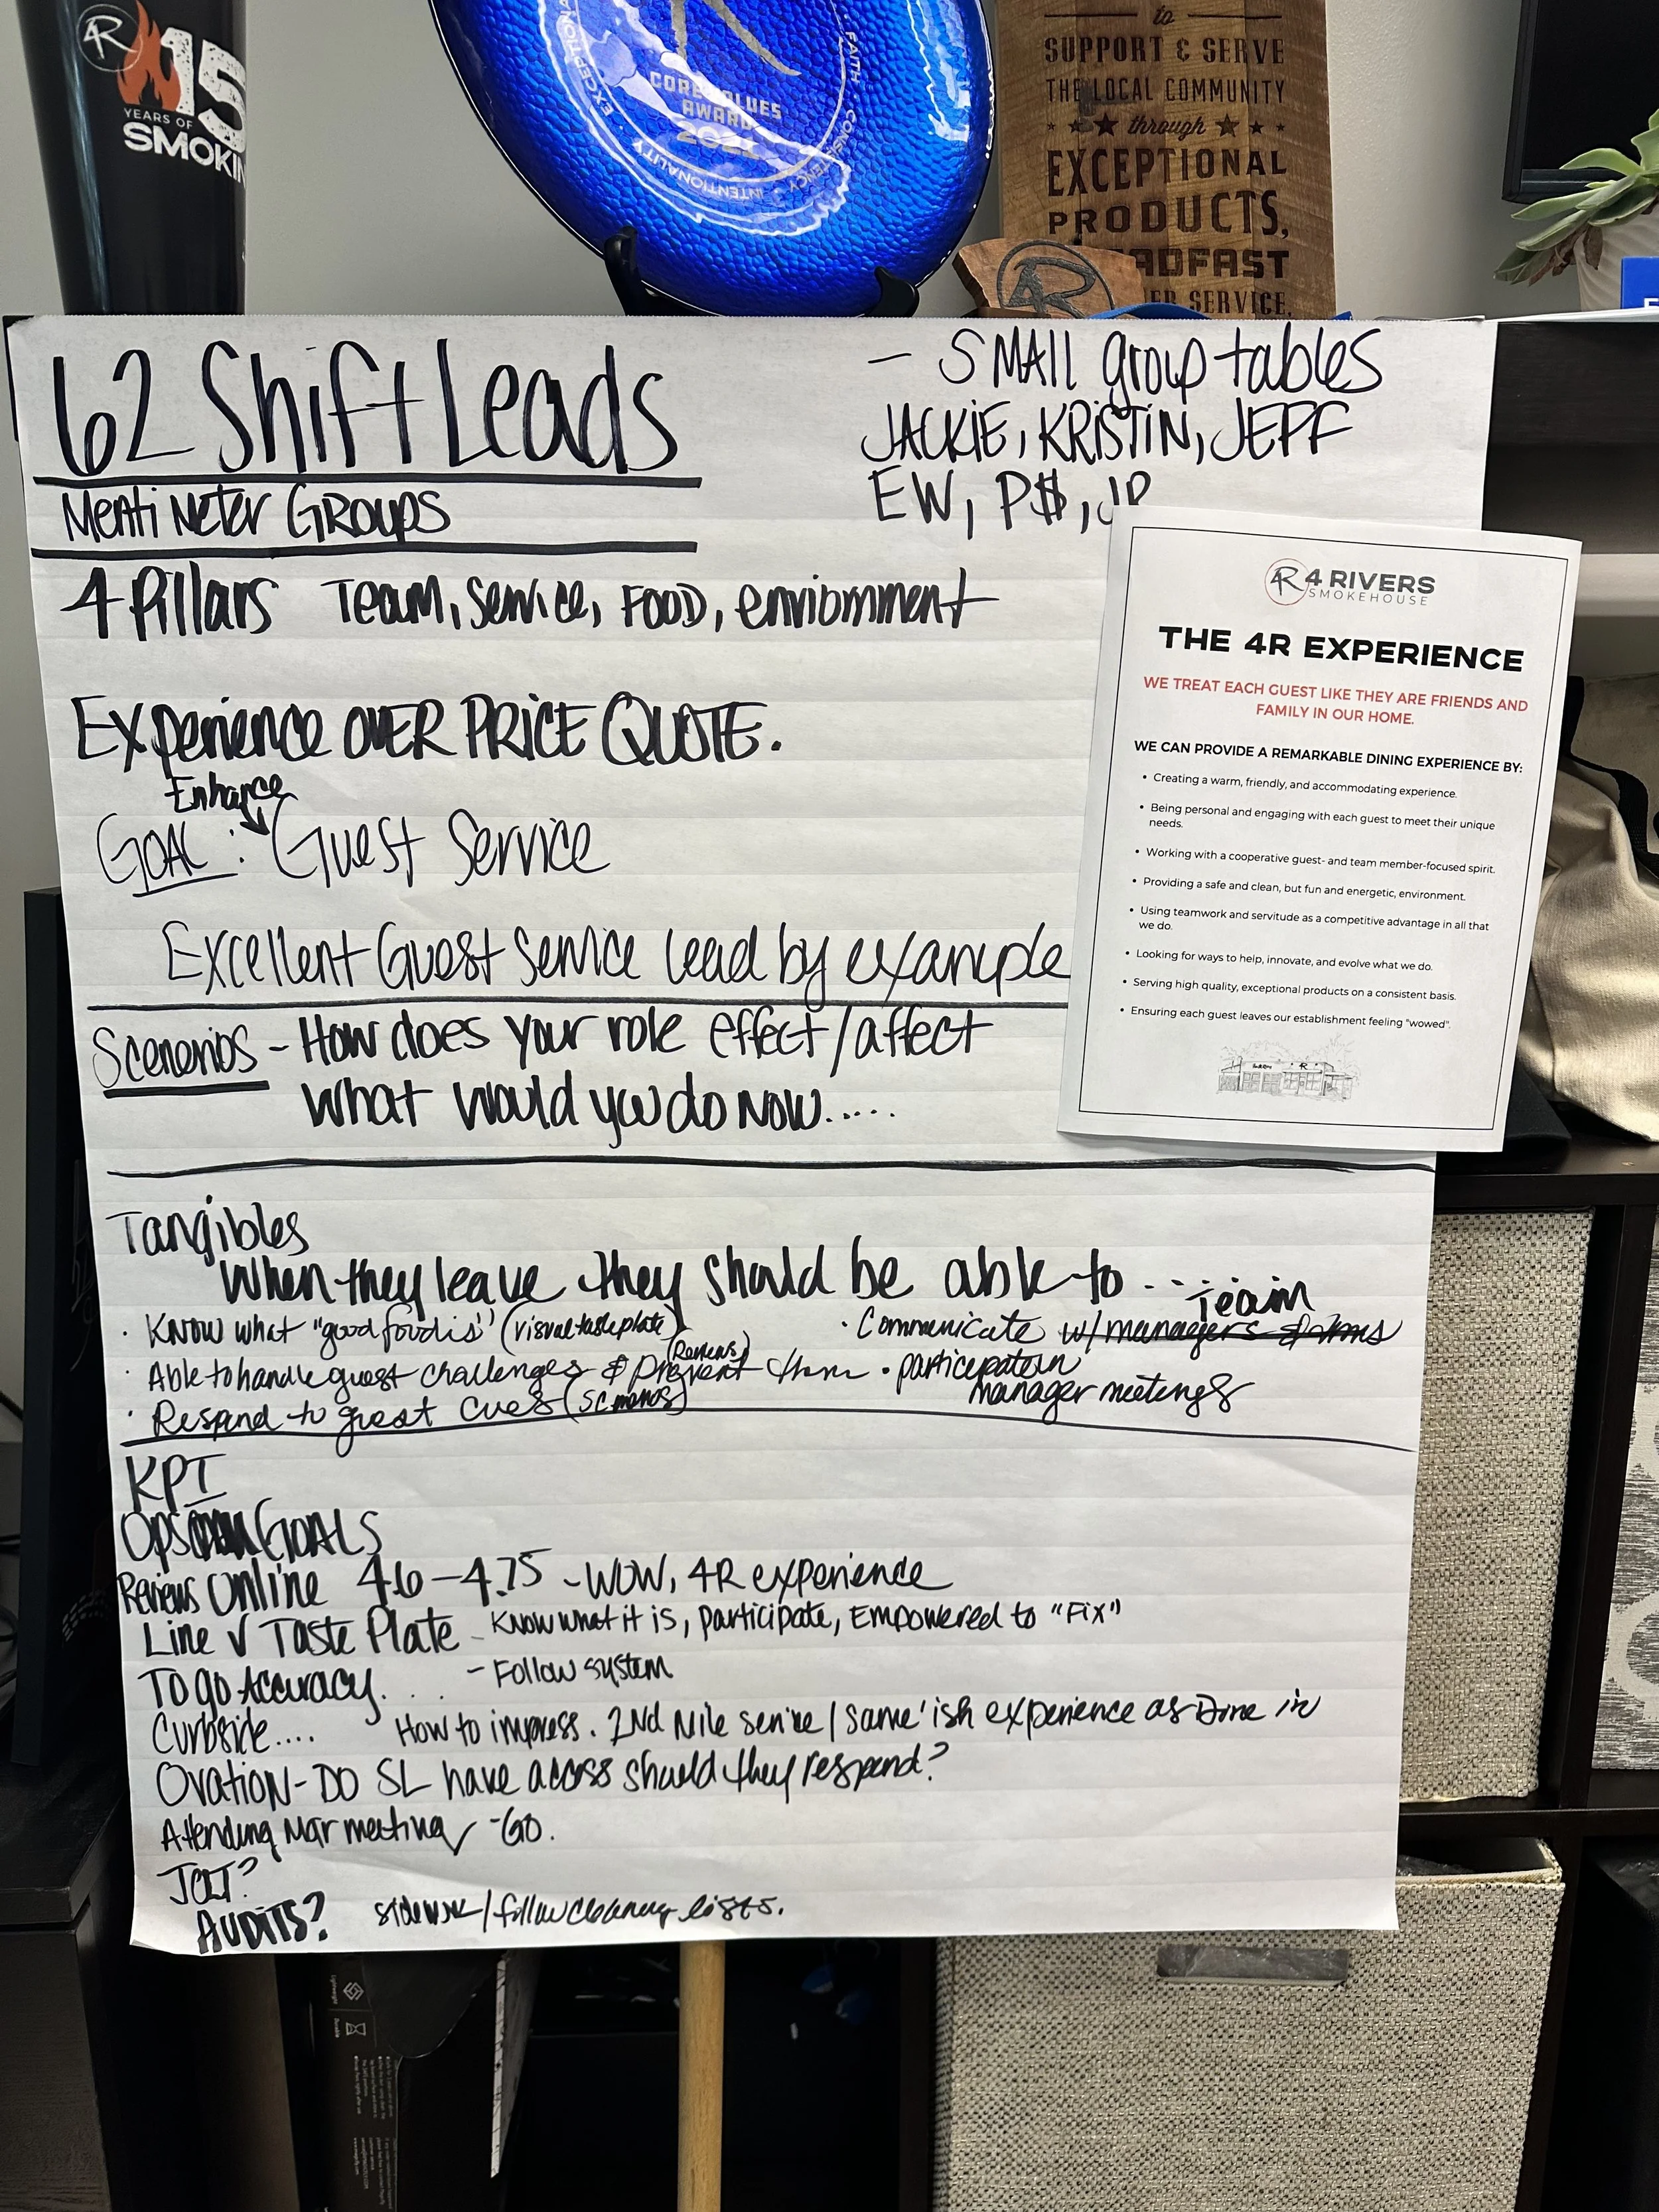 4R
15
YEARS OF
SMOKIN
CORE VALUES
AWARD
FAITH
INTENTIONALITY
to
SUPPORT & SERVE
THE LOCAL COMMUNITY
through
EXCEPTIONAL
PRODUCTS,
ADFAST
ER SERVICE.
4R
62 Shift Leads
Menti Meter GROUPS
- SMALL group tables
JACKIE, KRISTIN, JEFF
EW, P$, JP
4 Pillars Team, Service, FOOD, enviornment
Experience OVER PRICE QUOTE.
Enhance
GOAL: Guest Service
Excellent Guest Service lead by example
Scenerios - How does your role effect/affect
What would you do NOW.....
4R 4 RIVERS
SMOKEHOUSE
THE 4R EXPERIENCE
WE TREAT EACH GUEST LIKE THEY ARE FRIENDS AND
FAMILY IN OUR HOME.
WE CAN PROVIDE A REMARKABLE DINING EXPERIENCE BY:
• Creating a warm, friendly, and accommodating experience.
• Being personal and engaging with each guest to meet their unique
needs.
• Working with a cooperative guest- and team member-focused spirit.
• Providing a safe and clean, but fun and energetic, environment.
• Using teamwork and servitude as a competitive advantage in all that
we do.
• Looking for ways to help, innovate, and evolve what we do.
• Serving high quality, exceptional products on a consistent basis.
• Ensuring each guest leaves our establishment feeling "wowed".
Tangibles
When they leave they should be able to...
· Know what "good food is" (visual taste plate)
· Able to handle guest challenges & prevent them (Reviews)
· Respond to guest cues (scenerios)
team
· Communicate w/ managers
· participate in
manager meetings
KPI
OPS GOALS
Reviews Online 4.6 - 4.75 - WOW, 4R experience
Line √ Taste Plate - Know what it is, participate, Empowered to "Fix"
To go Accuracy... - Follow system
Curbside.... How to impress. 2nd Mile service / same'ish experience as Dine in
Ovation - DO SL have access should they respond?
Attending Mgr meeting - GO.
JOLT?
AUDITS? sidework/follow cleaning lists.